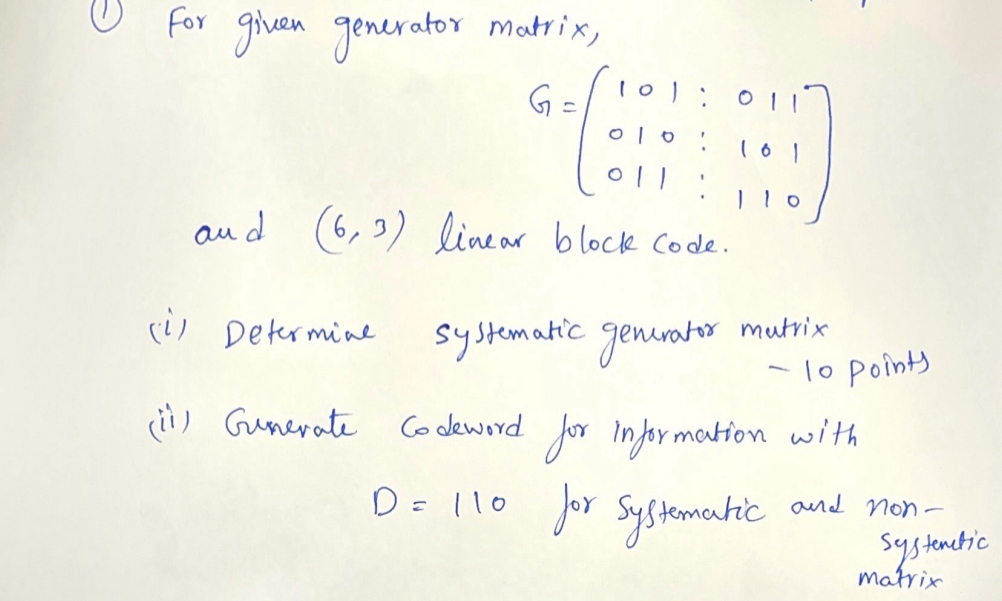 ① For given generator matrix,
G = [ 1 0 1 : 0 1 1
0 1 0 : 1 0 1
0 1 1 : 1 1 0 ]
and (6, 3) linear block code.
(i) Determine systematic generator mutrix
- 10 points
(ii) Generate Codeword for information with
D = 110 for systematic and non-
systenetic
matrix